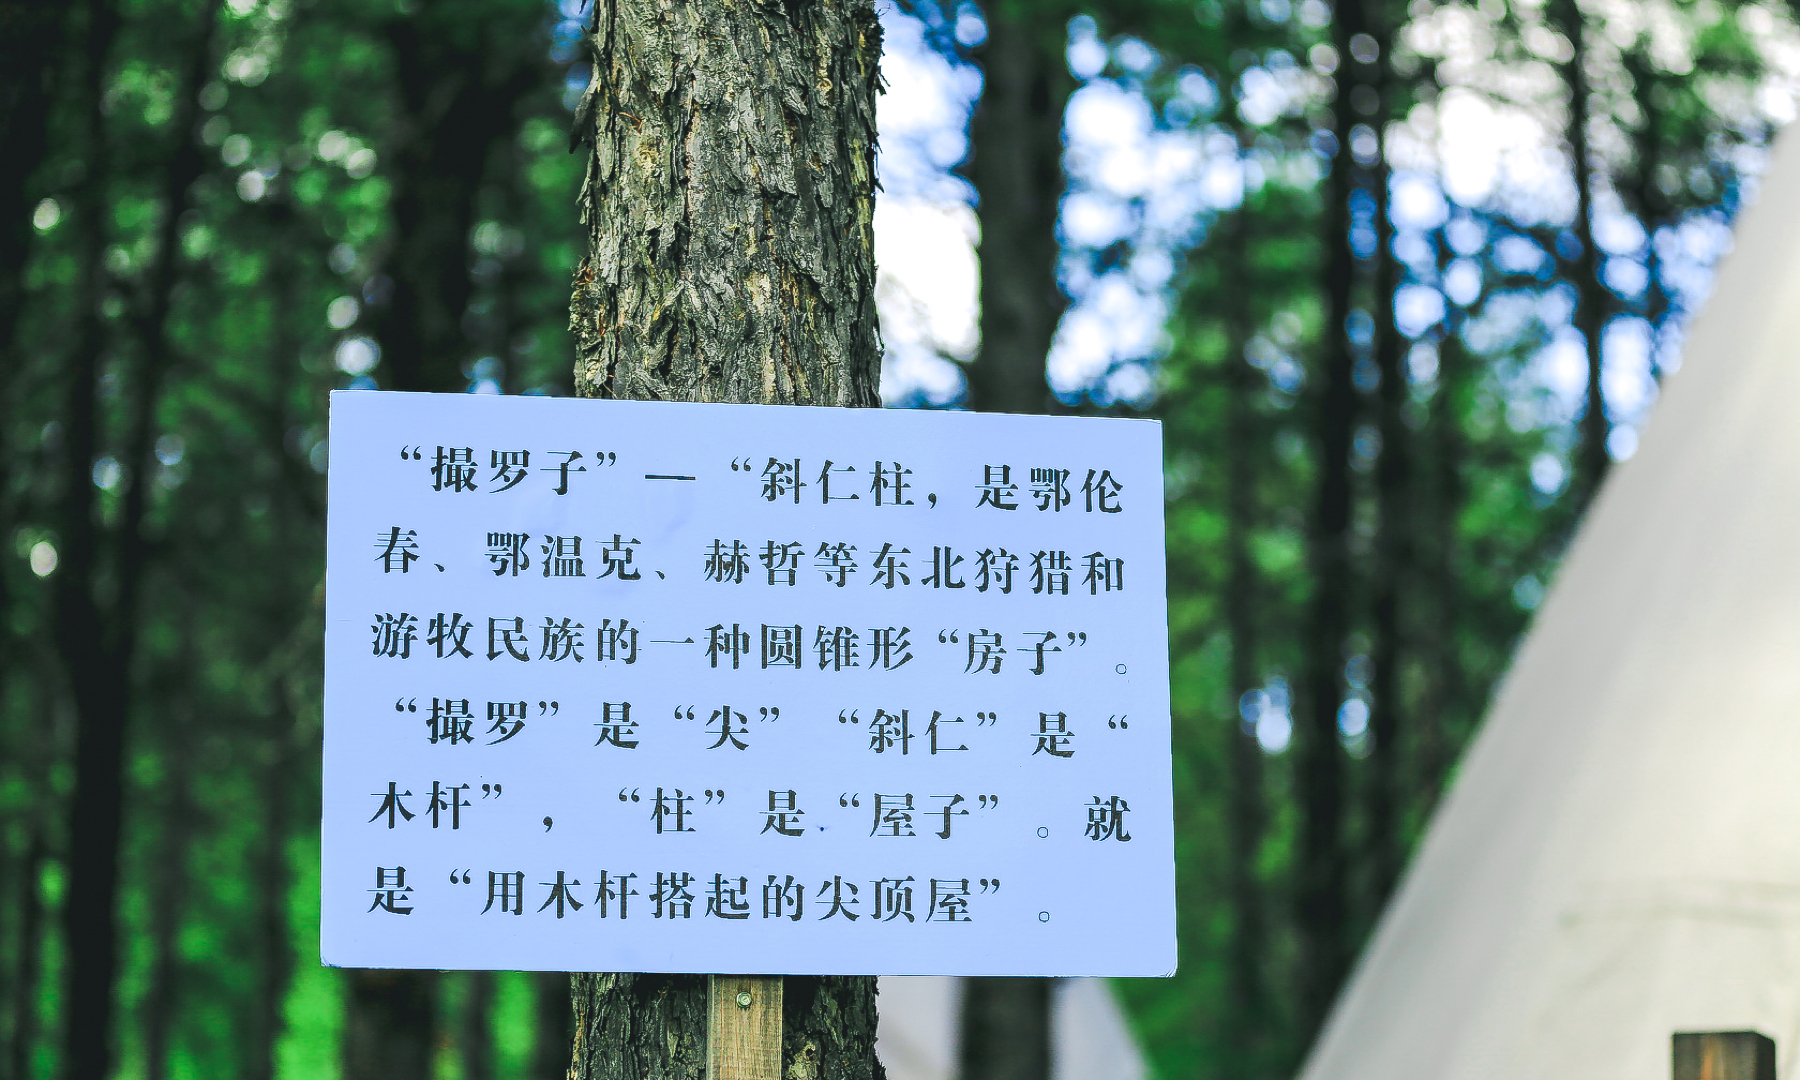 “撮罗子”—“斜仁柱，是鄂伦
春、鄂温克、赫哲等东北狩猎和
游牧民族的一种圆锥形“房子”。
“撮罗”是“尖”“斜仁”是“
木杆”，“柱”是“屋子”。就
是“用木杆搭起的尖顶屋”。